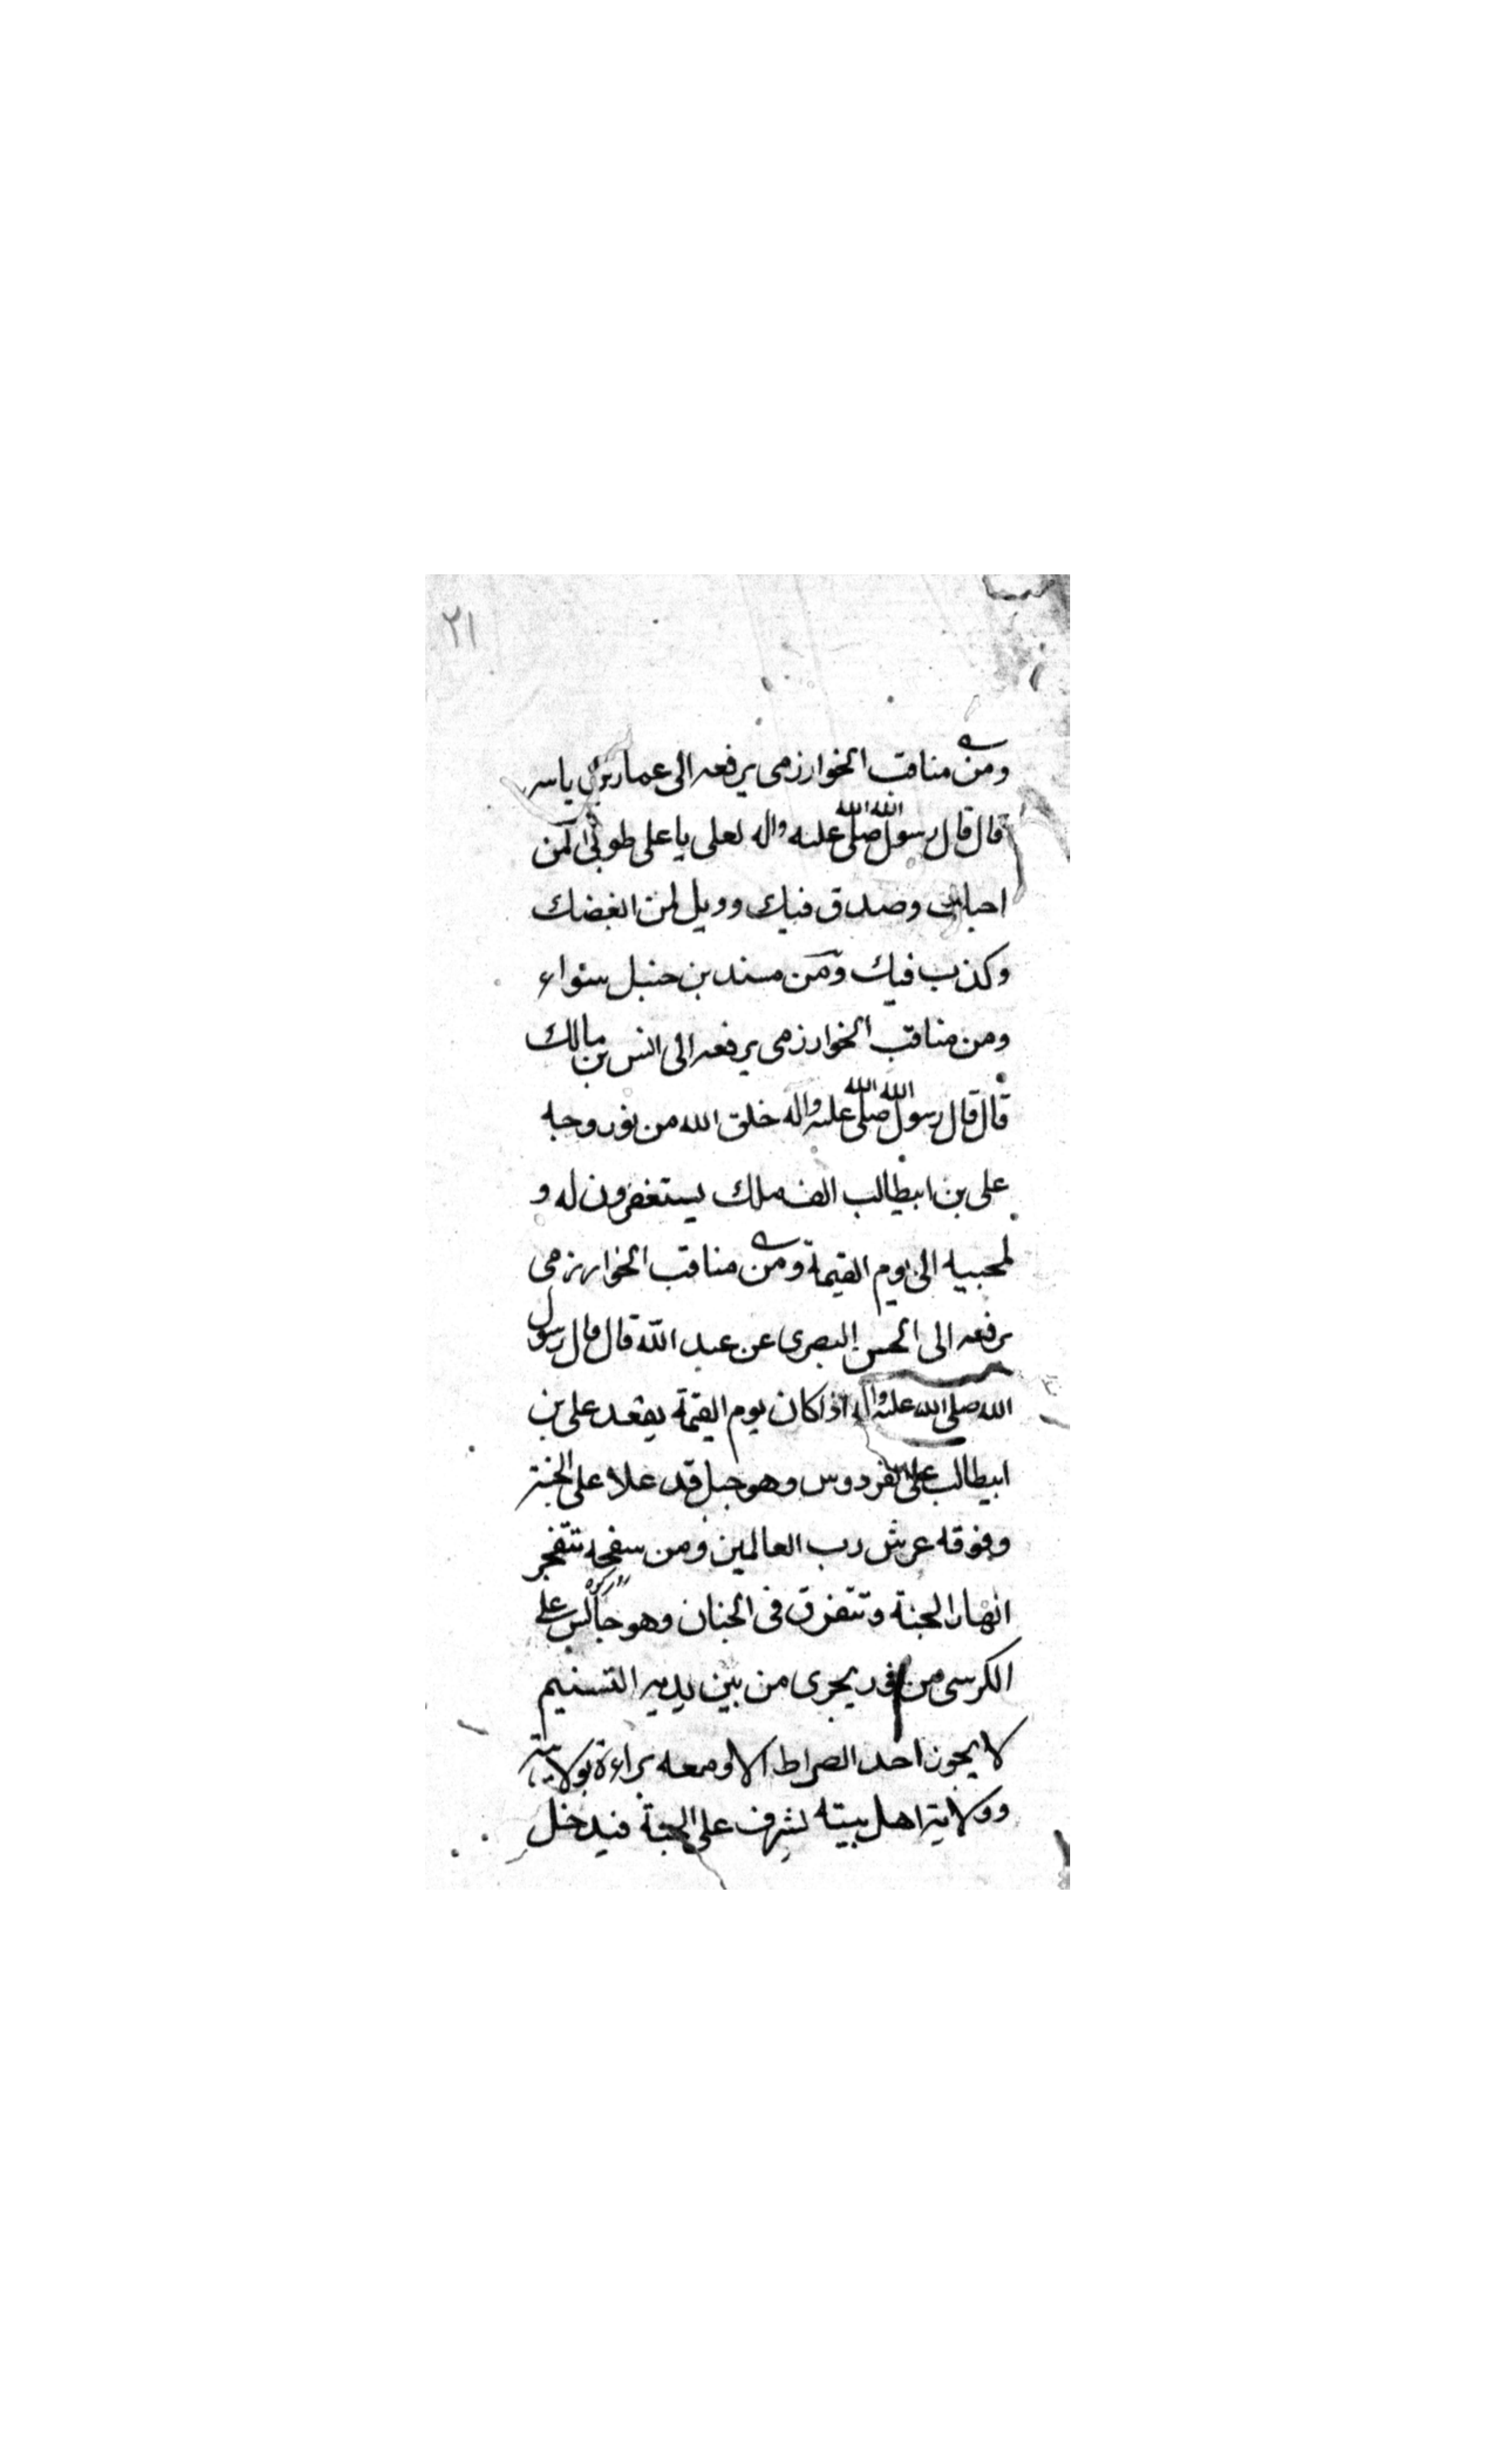 ٢١
ومن مناقب الخوارزمى يرفعه الى عمار بن ياسر
قال قال رسول الله صلى الله عليه واله لعلى يا على طوبى لمن
احبك وصدق فيك وويل لمن ابغضك
وكذب فيك ومن مسند بن حنبل سواء
ومن مناقب الخوارزمى يرفعه الى انس بن مالك
قال قال رسول الله صلى الله عليه واله خلق الله من نور وجه
على بن ابيطالب الف ملك يستغفرون له و
لمحبيه الى يوم القيمة ومن مناقب الخوارزمى
يرفعه الى الحسن البصرى عن عبد الله قال قال رسول
الله صلى الله عليه واله اذا كان يوم القيمة يقعد على بن
ابيطالب على الفردوس وهو جبل قد علا على الجنة
وفوقه عرش رب العالمين ومن سفحه تتفجر
انهار الجنة وتتفرق فى الجنان وهو جالس على
الكرسى من نور يجرى من بين يديه التسنيم
لا يجوز احد الصراط الا ومعه براءة بولايته
وولاية اهل بيته يشرف على الجنة فيدخل